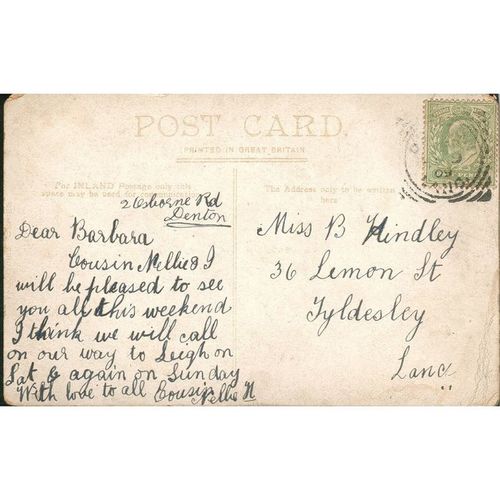 POST CARD.
PRINTED IN GREAT BRITAIN
For INLAND Postage only this
space may be used for communication
The Address only to be written
here
2 Osborne Rd
Denton
Dear Barbara
Cousin Nellie & I
will be pleased to see
you all this weekend
I think we will call
on our way to Leigh on
Sat & again on Sunday
With love to all Cousin
Nellie H
Miss B Hindley
36 Lemon St
Tyldesley
Lanc